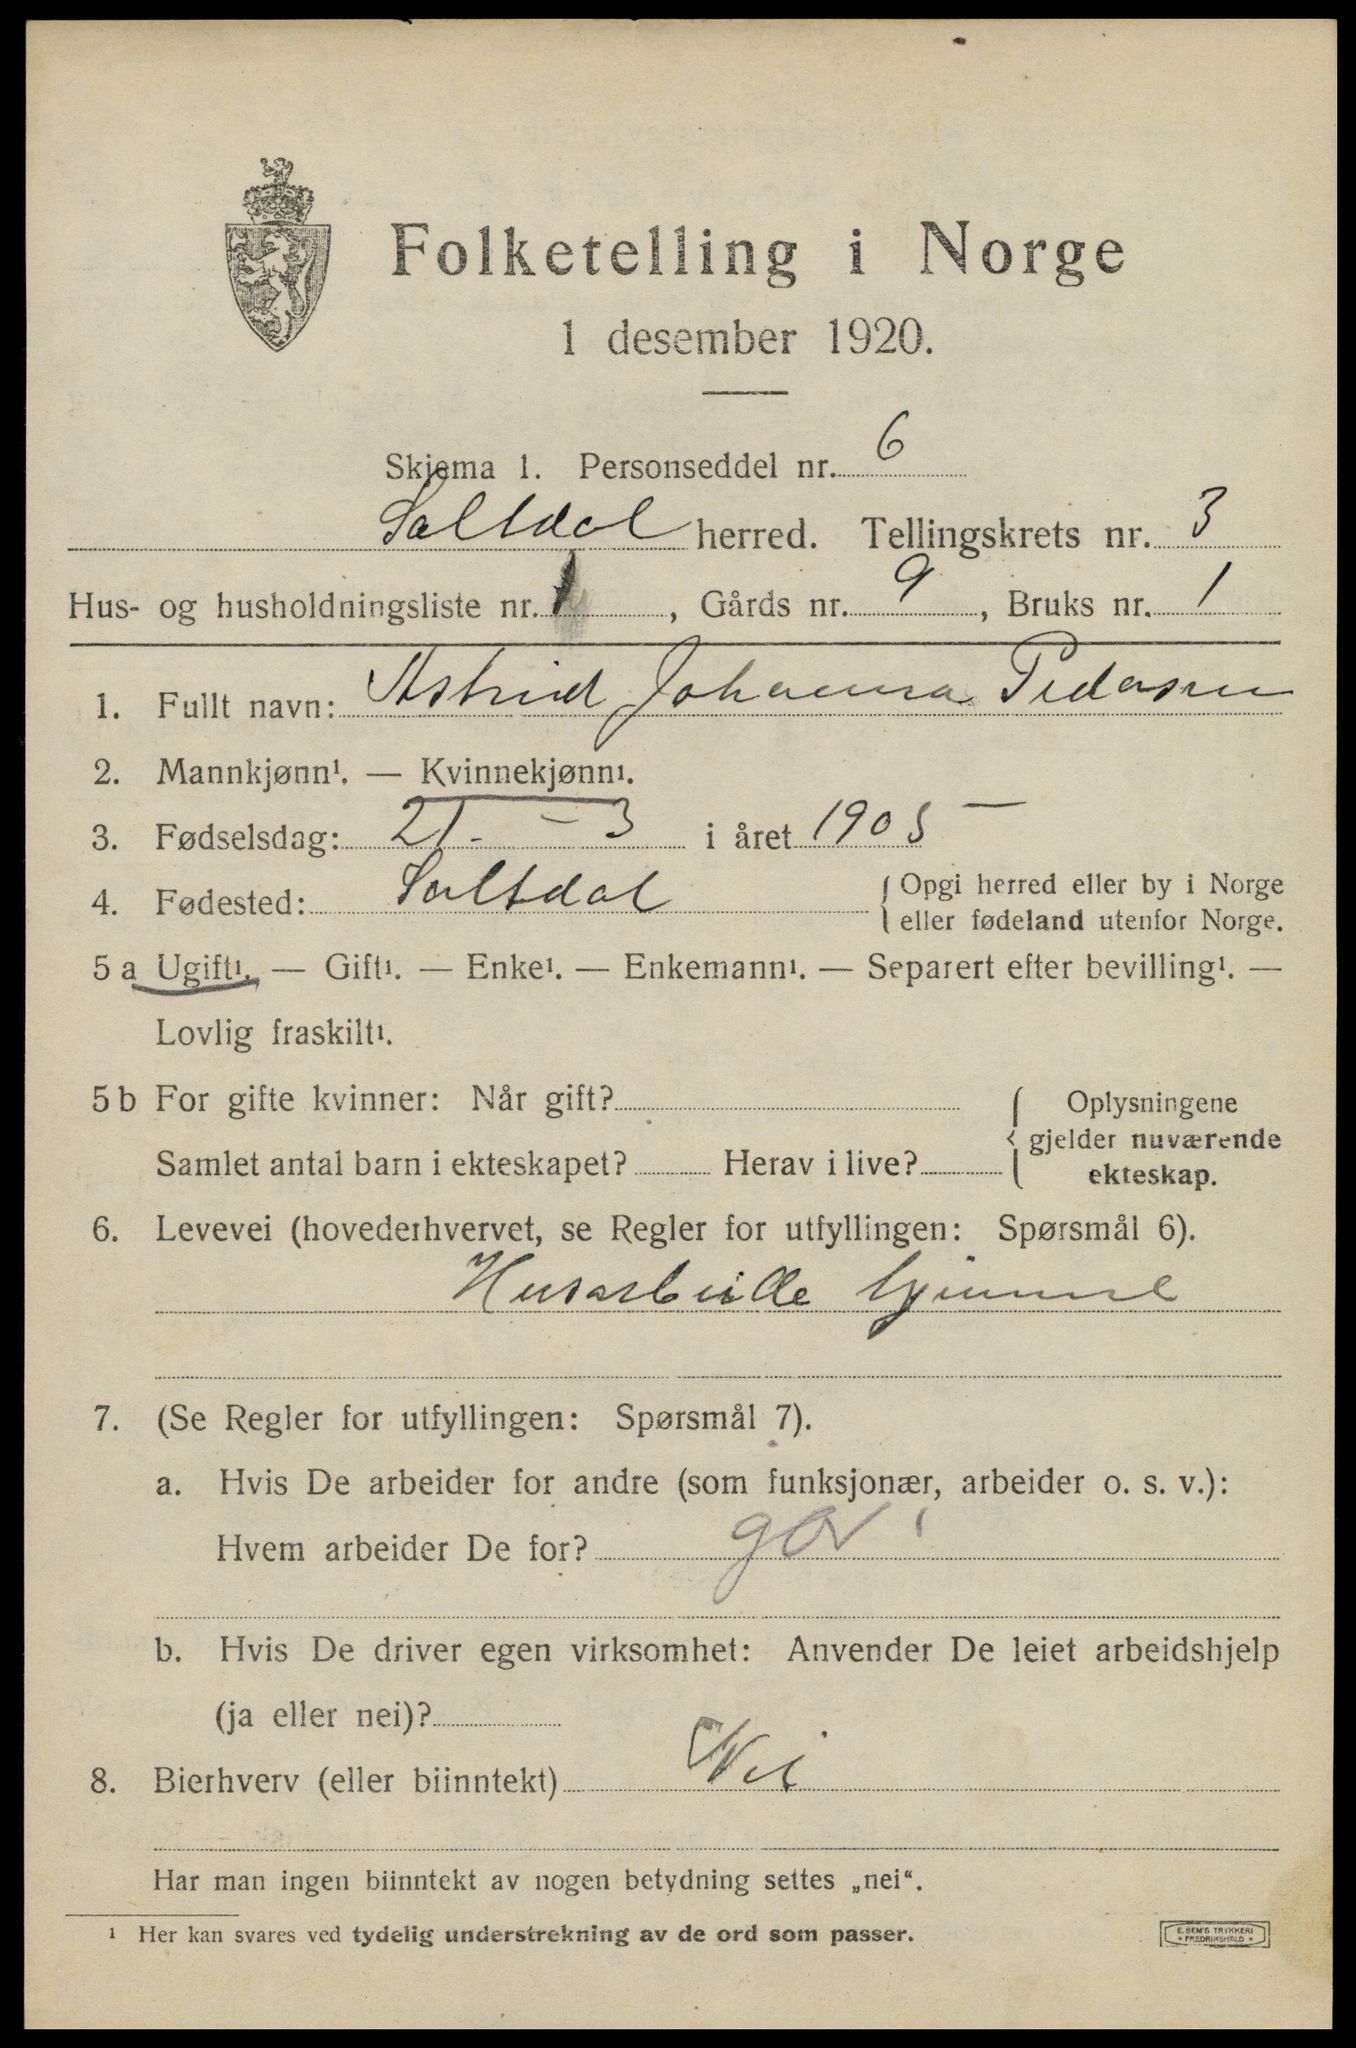 Folketelling i Norge
1 desember 1920.
Skjema 1. Personseddel nr. 6
Saltdal herred. Tellingskrets nr. 3
Hus- og husholdningsliste nr. 1, Gårds nr. 9, Bruks nr. 1
1. Fullt navn: Astrid Johanna Pedersen
2. Mannkjønn¹. — Kvinnekjønn¹.
3. Fødselsdag: 21. - 3 i året 1905 —
4. Fødested: Saltdal { Opgi herred eller by i Norge
eller fødeland utenfor Norge.
5 a Ugift¹. — Gift¹. — Enke¹. — Enkemann¹. — Separert efter bevilling¹. —
Lovlig fraskilt¹.
5 b For gifte kvinner: Når gift? { Oplysningene
gjelder nuværende
Samlet antal barn i ekteskapet? Herav i live? ekteskap.
6. Levevei (hovederhvervet, se Regler for utfyllingen: Spørsmål 6).
Husarbeide hjemme
7. (Se Regler for utfyllingen: Spørsmål 7).
a. Hvis De arbeider for andre (som funksjonær, arbeider o. s. v.):
Hvem arbeider De for?
b. Hvis De driver egen virksomhet: Anvender De leiet arbeidshjelp
(ja eller nei)?
8. Bierhverv (eller biinntekt) Nei
Har man ingen biinntekt av nogen betydning settes „nei“.
¹ Her kan svares ved tydelig understrekning av de ord som passer.
E. SEM'S TRYKKERI
* FREDRIKSHALD *